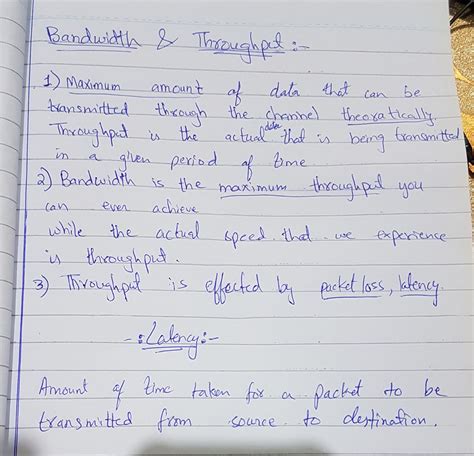 Bandwidth & Throughput :-
1) Maximum amount of data that can be
transmitted through the channel theoratically.
Throughput is the actual data that is being transmitted
in a given period of time
2) Bandwidth is the maximum throughput you
can ever achieve
while the actual speed that we experience
is throughput.
3) Throughput is effected by packet loss, latency.
-: Latency :-
Amount of time taken for a packet to be
transmitted from source to destination.